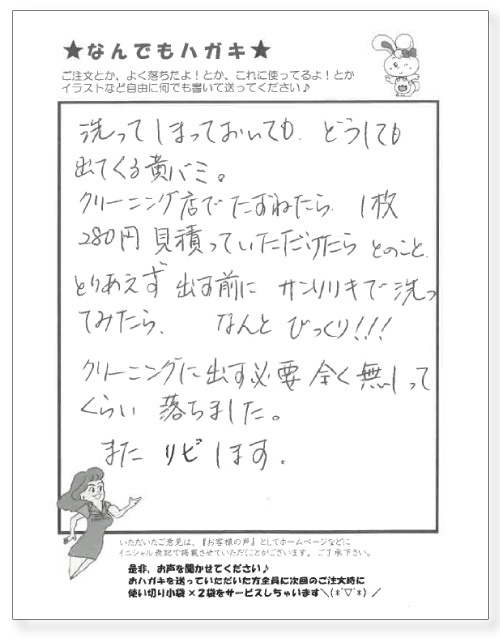 ★なんでもハガキ★
ご注文とか、よく落ちたよ！とか、これに使ってるよ！とか
イラストなど自由に何でも書いて送ってください♪
洗ってしまっておいても、どうしても
出てくる黄バミ。
クリーニング店でたずねたら、1枚
280円見積っていただけたらとのこと、
とりあえず出す前にサンリリキで洗っ
てみたら、なんとびっくり!!!
クリーニングに出す必要全く無しって
くらい落ちました。
またリピします。
いただいたご意見は、『お客様の声』としてホームページなどに
イニシャル表記で掲載させていただくことがございます。ご了承下さい。
是非、お声を聞かせてください♪
おハガキを送っていただいた方全員に次回のご注文時に
使い切り小袋×2袋をサービスしちゃいます＼(*ˊ▽ˋ*)／